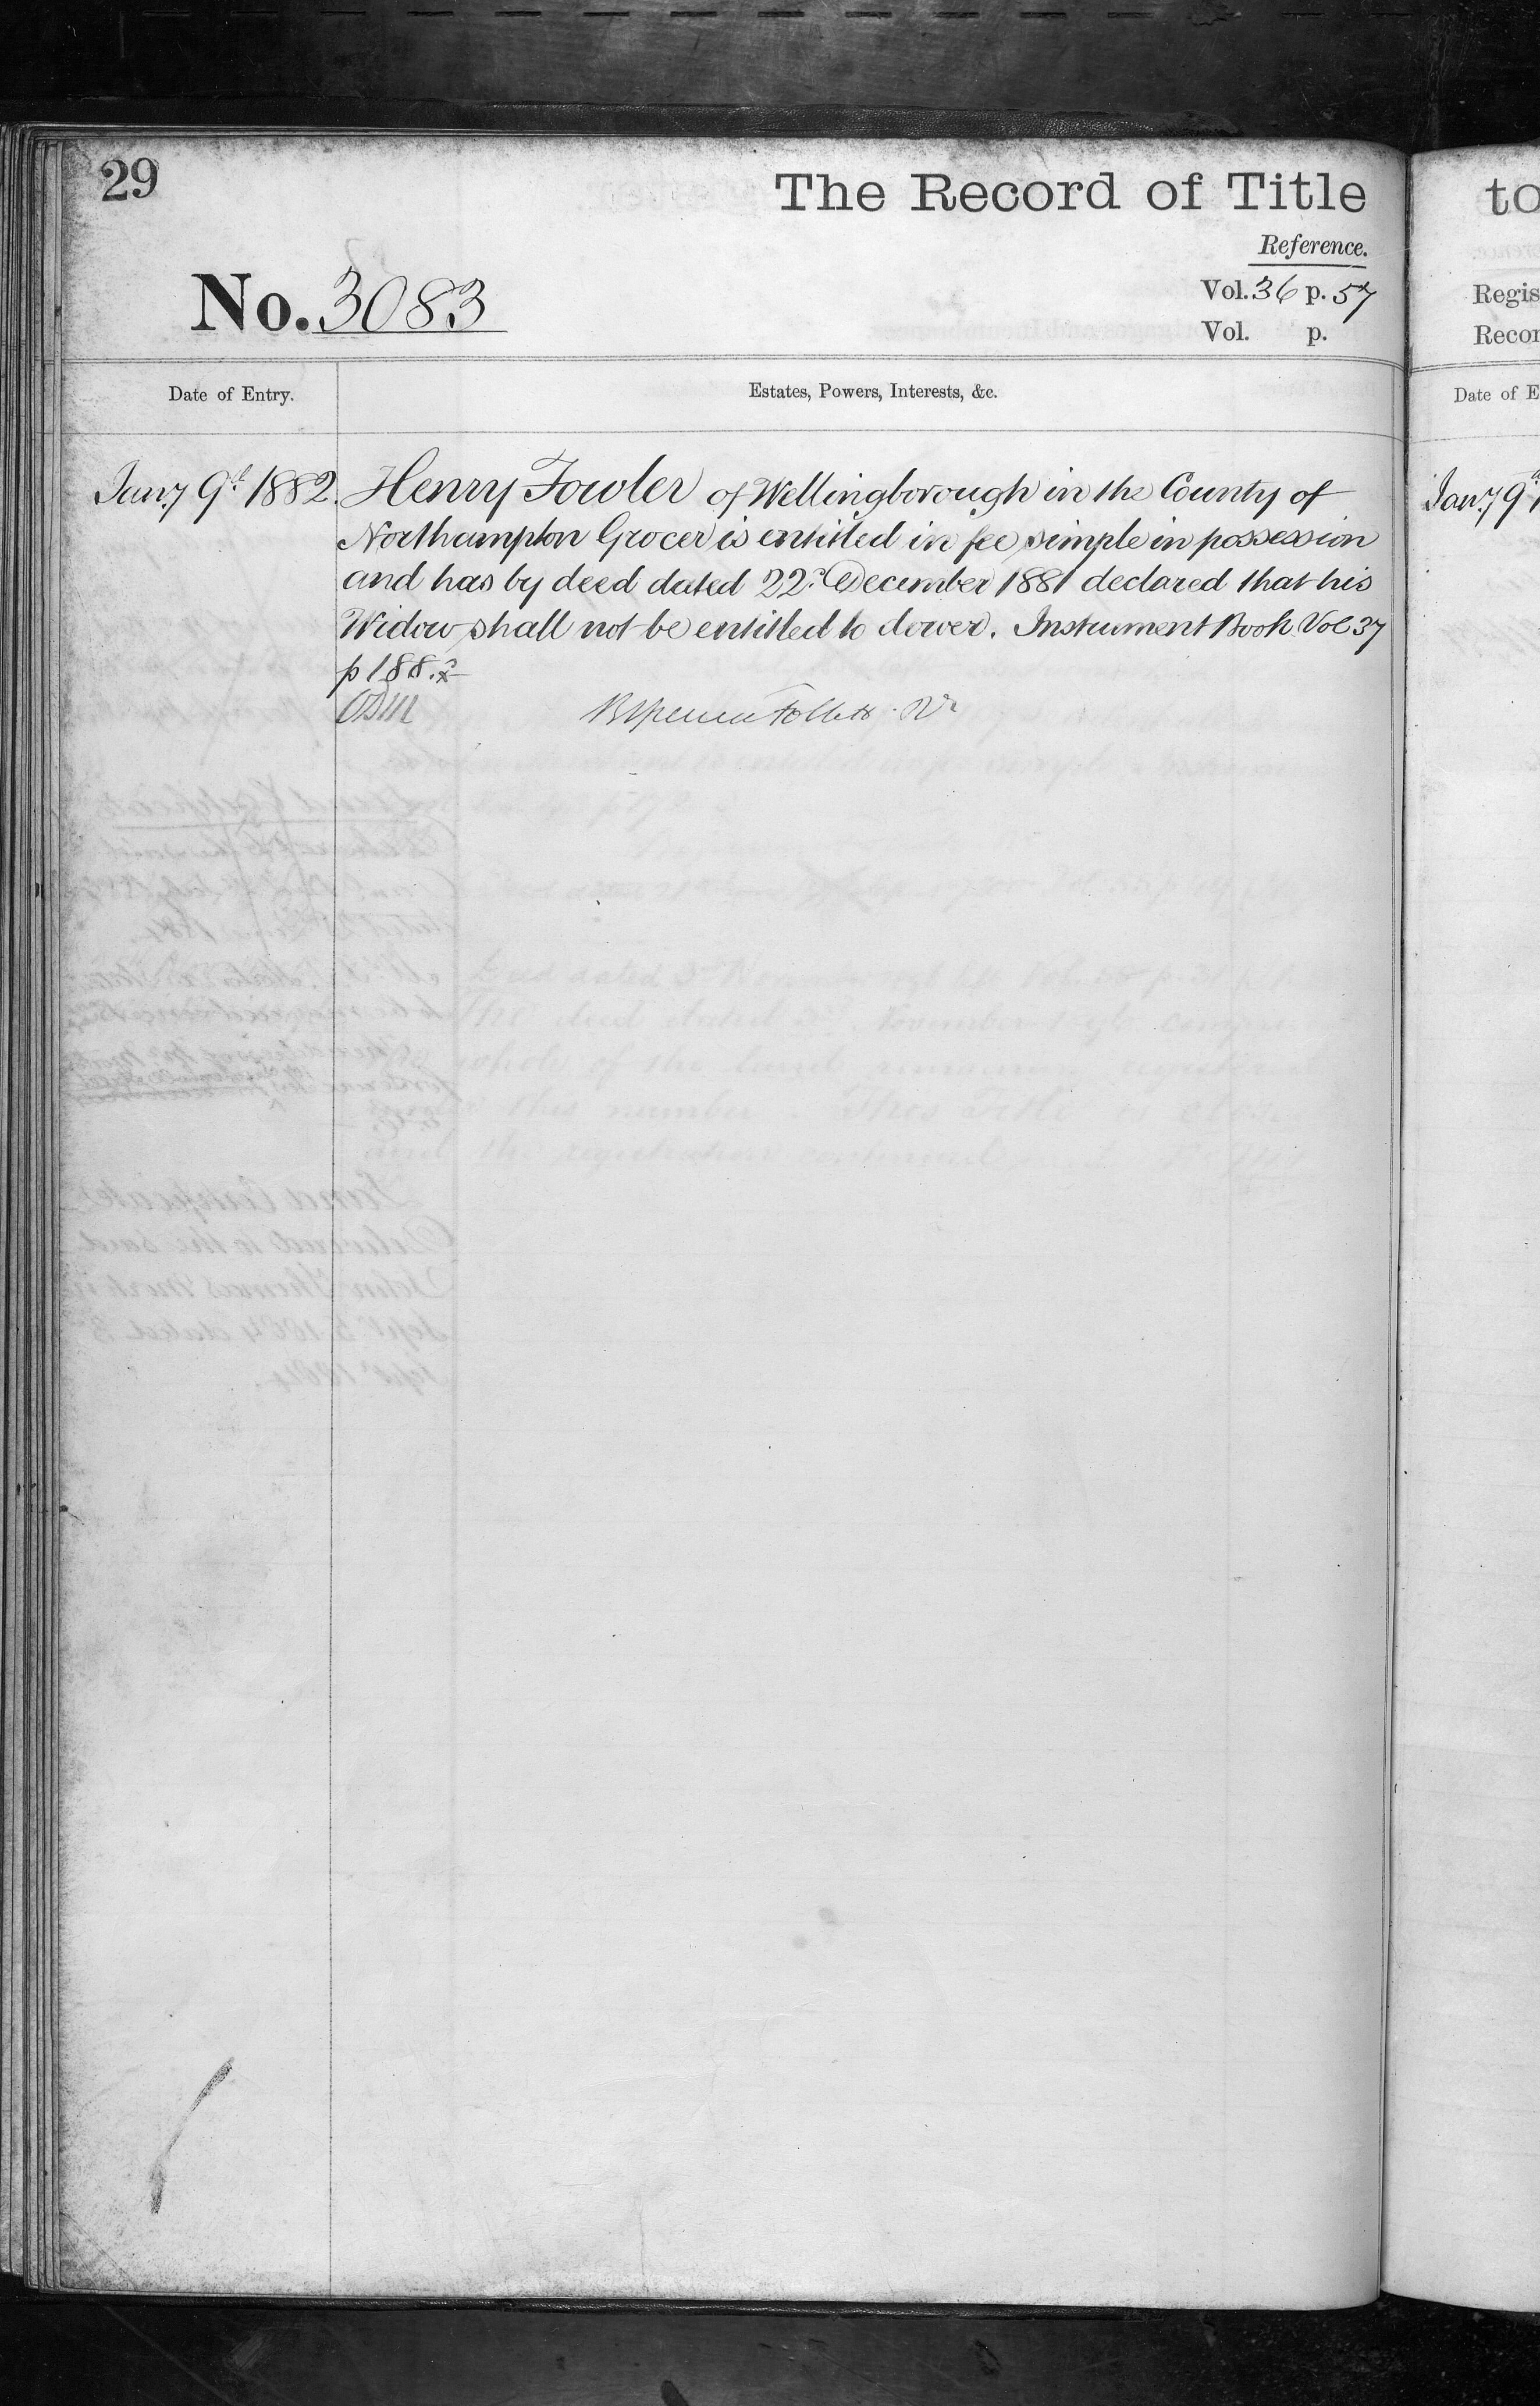 29
The Record of Title
Reference.
No. 3083
Vol. 36 p. 57
Vol. p.
Date of Entry.
Estates, Powers, Interests, &c.
Jany 9th 1882. Henry Fowler of Wellingborough in the County of
Northampton Grocer is entitled in fee simple in possession
and has by deed dated 22d December 1881 declared that his
Widow shall not be entitled to dower. Instrument Book Vol 37
p 188.
B Spencer Follett
to
Regis
Recor
Date of E
Jany 9th 1